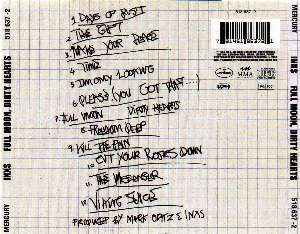 518 637-2
MERCURY
518 637-2
FULL MOON, DIRTY HEARTS
INXS
MERCURY
1. DAYS OF RUST
2. THE GIFT
3. MAKE YOUR PEACE
4. TIME
5. I'M ONLY LOOKING
6. PLEASE (YOU GOT THAT...)
7. FULL MOON DIRTY HEARTS
8. FREEDOM DEEP
9. KILL THE PAIN
10. CUT YOUR ROSES DOWN
11. THE MESSENGER
12. VIKING JUICE
PRODUCED BY MARK OPITZ & INXS
MMA
MERCURY
INXS
FULL MOON, DIRTY HEARTS
518 637-2